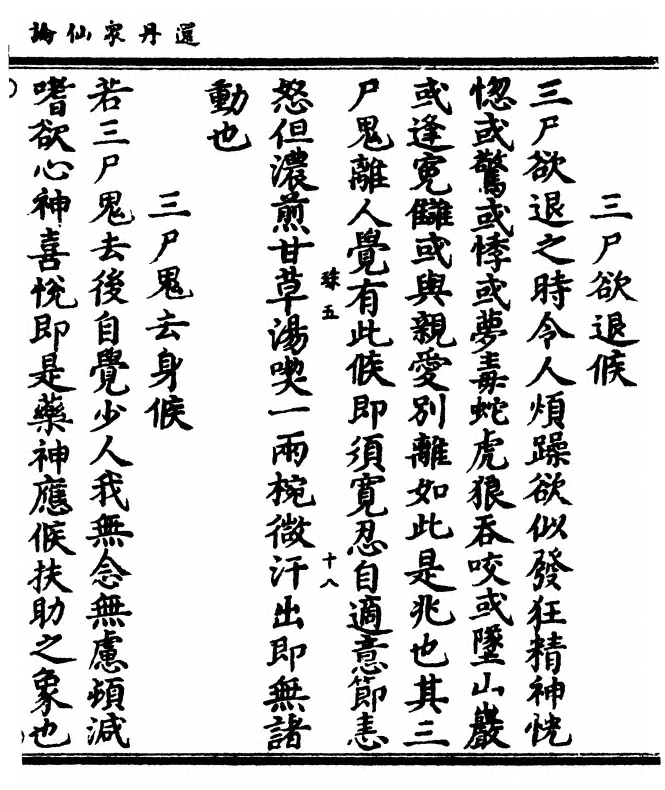 還丹衆仙論
三尸欲退候
三尸欲退之時令人煩躁欲似發狂精神恍
惚或驚或悸或夢毒蛇虎狼吞咬或墜山巖
或逢寃讎或與親愛別離如此是兆也其三
尸鬼離人覺有此候即須寬忍自適意節恚
珠五
十八
怒但濃煎甘草湯喫一兩椀微汗出即無諸
動也
三尸鬼去身候
若三尸鬼去後自覺少人我無念無慮頓減
嗜欲心神喜悅即是藥神應候扶助之象也